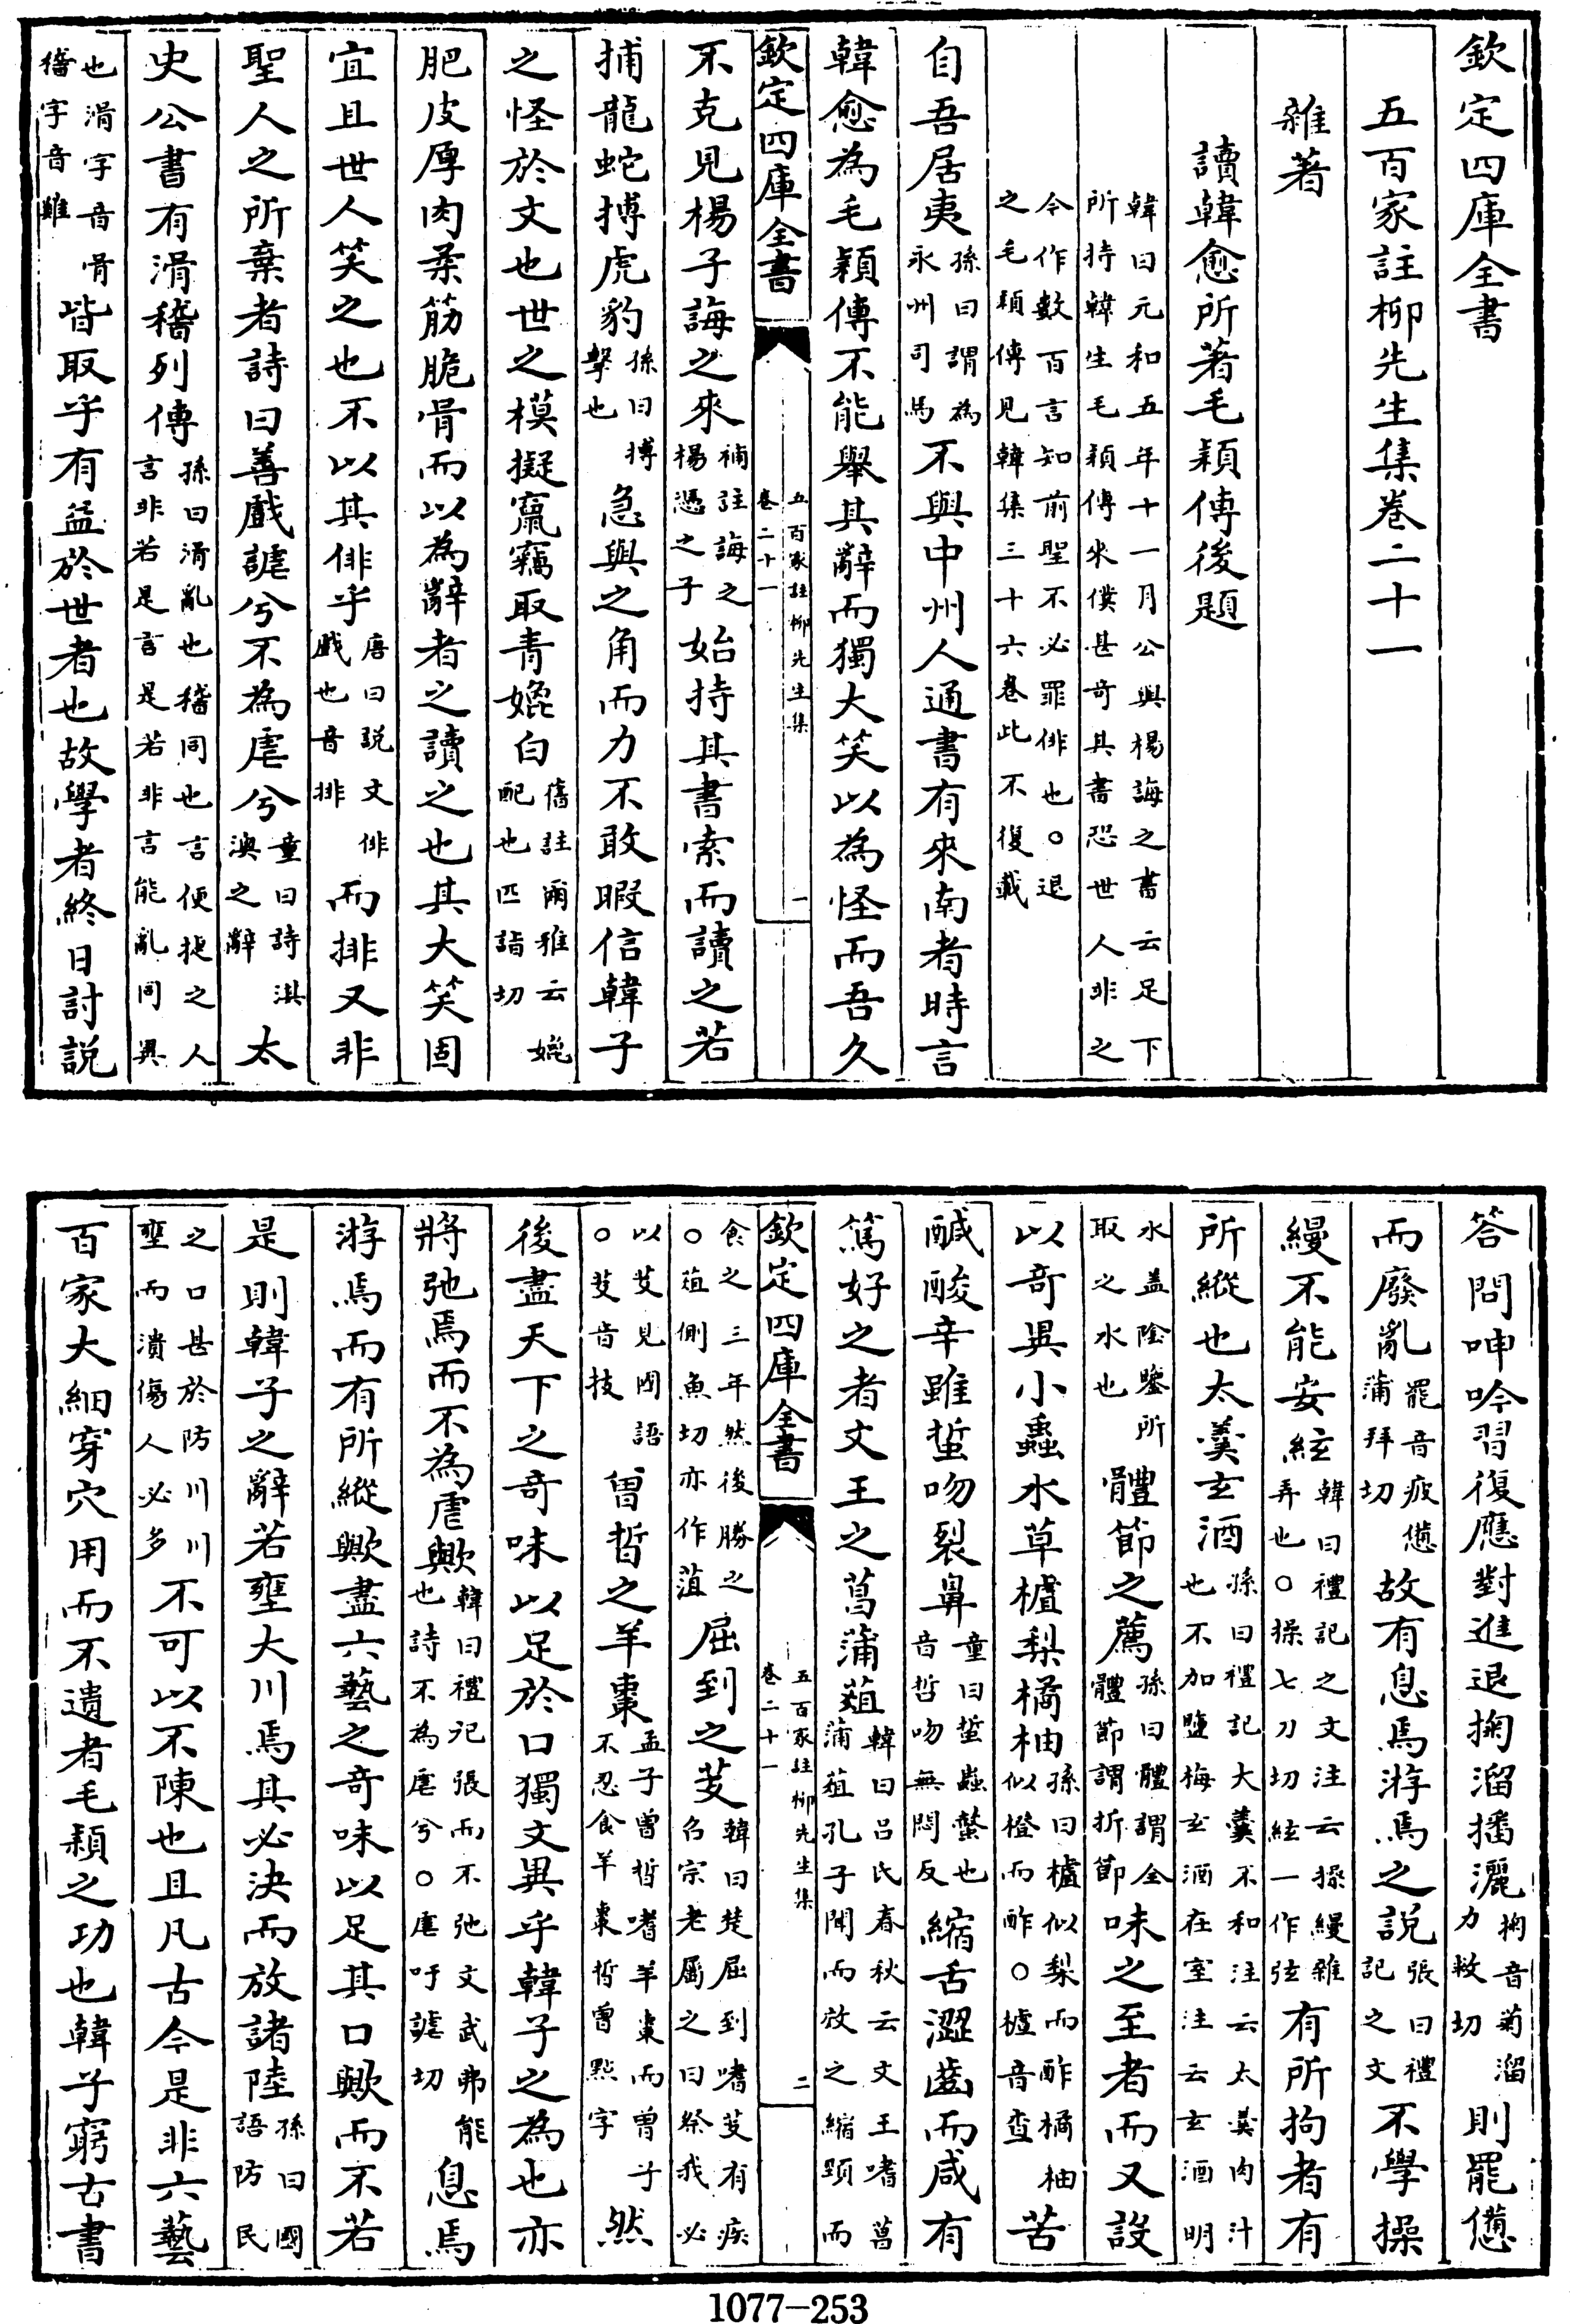 欽定四庫全書
五百家註柳先生集卷二十一
雜著
讀韓愈所著毛穎傳後題
韓曰元和五年十一月公與楊誨之書云足下
所持韓生毛穎傳來僕甚奇其書恐世人非之
今作數百言知前聖不必罪俳也○退
之毛穎傳見韓集三十六卷此不復載
自吾居夷孫曰謂為永州司馬不與中州人通書有來南者時言
韓愈為毛穎傳不能舉其辭而獨大笑以為怪而吾久
欽定四庫全書
五百家註柳先生集
卷二十一
一
不克見楊子誨之來補註誨之楊憑之子始持其書索而讀之若
捕龍蛇搏虎豹孫曰搏擊也急與之角而力不敢暇信韓子
之怪於文也世之模擬竄竊取青媲白舊註爾雅云媲配也匹詣切
肥皮厚肉柔筋脆骨而以為辭者之讀之也其大笑固
宜且世人笑之也不以其俳乎唐曰説文俳戲也音排而排又非
聖人之所棄者詩曰善戲謔兮不為虐兮童曰詩淇澳之辭太
史公書有滑稽列傳孫曰滑亂也稽同也言便捷之人言非若是言是若非言能亂同異
也滑字音骨稽字音雞皆取乎有益於世者也故學者終日討説
答問呻吟習復應對進退掬溜播灑掬音菊溜力救切則罷憊
而廢亂罷音疲憊蒲拜切故有息焉游焉之說張曰禮記之文不學操
縵不能安絃韓曰禮記之文注云操縵雜弄也○操七刀切絃一作弦有所拘者有
所縱也太羮玄酒孫曰禮記大羮不和注云太羮肉汁也不加鹽梅玄酒在室注云玄酒明
水盖陰鑒所取之水也體節之薦孫曰體謂全體節謂折節味之至者而又設
以奇異小蟲水草樝梨橘柚孫曰樝似梨而酢橘柚似橙而酢○樝音查苦
醎酸辛雖蜇吻裂鼻童曰蜇蟲螫也音哲吻無悶反縮舌澀齒而咸有
篤好之者文王之菖蒲葅韓曰吕氏春秋云文王嗜菖蒲葅孔子聞而放之縮頞而
欽定四庫全書
五百家註柳先生集
卷二十一
二
食之三年然後勝之○葅側魚切亦作菹屈到之芰韓曰楚屈到嗜芰有疾名宗老屬之曰祭我必
以芰見國語○芰音技曾晳之羊棗孟子曾晳嗜羊棗而曾子不忍食羊棗晳曾㸃字然
後盡天下之奇味以足於口獨文異乎韓子之為也亦
將弛焉而不為虐歟韓曰禮記張而不弛文武弗能也詩不為虐兮○虐吁謔切息焉
游焉而有所縱歟盡六藝之奇味以足其口歟而不若
是則韓子之辭若壅大川焉其必決而放諸陸孫曰國語防民
之口甚於防川川壅而潰傷人必多不可以不陳也且凡古今是非六藝
百家大細穿穴用而不遺者毛穎之功也韓子窮古書
1077-253